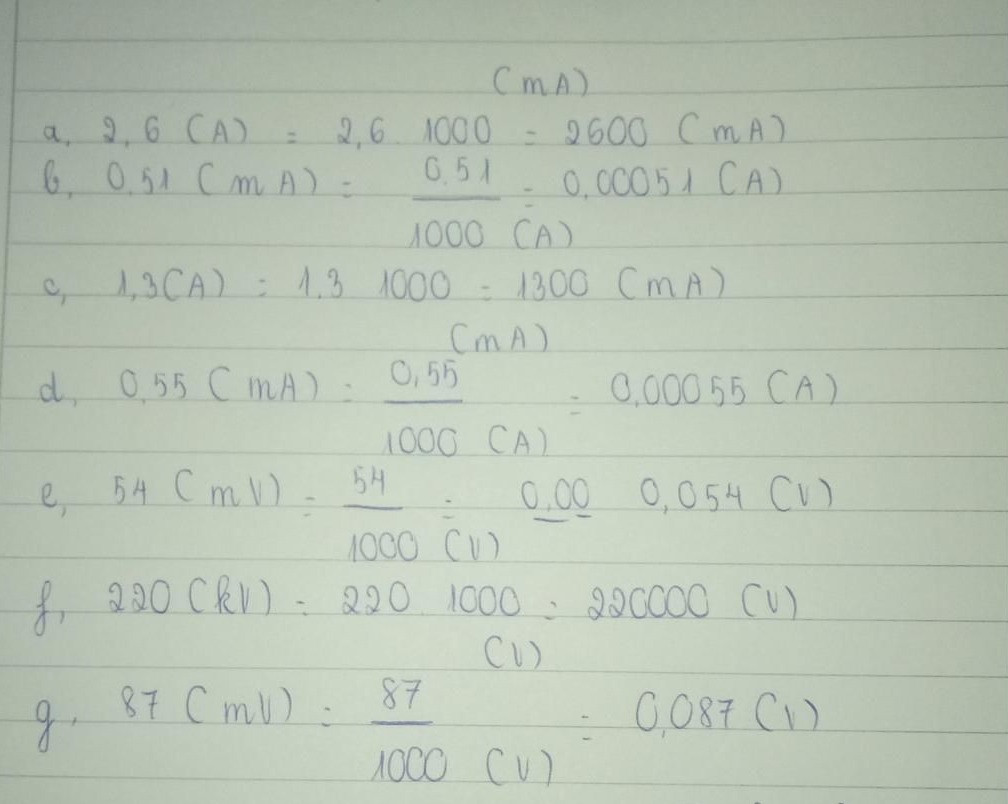 (mA)
a, 2,6 (A) = 2,6 1000 = 2600 (mA)
b, 0,51 (mA) = 0,51 = 0,00051 (A)
1000 (A)
c, 1,3(A) = 1,3 1000 = 1300 (mA)
(mA)
d, 0,55 (mA) = 0,55 = 0,00055 (A)
1000 (A)
e, 54 (mV) = 54 = 0,00 0,054 (V)
1000 (V)
f, 220 (kV) = 220 1000 = 220000 (V)
(V)
g, 87 (mV) = 87 = 0,087 (V)
1000 (V)